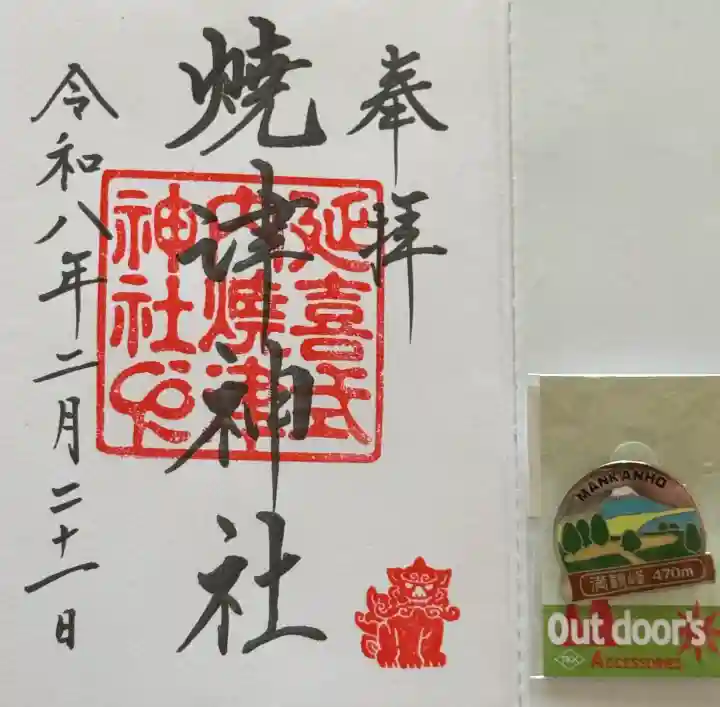 奉拝
焼津神社
延喜式
内焼津
神社
令和八年二月二十一日
MANKANHO
満観峰 470m
Out door's
TKK
ACCESSORIES